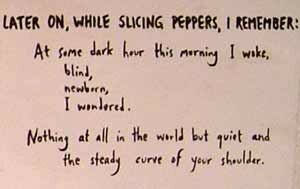 LATER ON, WHILE SLICING PEPPERS, I REMEMBER:
At some dark hour this morning I woke,
blind,
newborn,
I wondered.
Nothing at all in the world but quiet and
the steady curve of your shoulder.